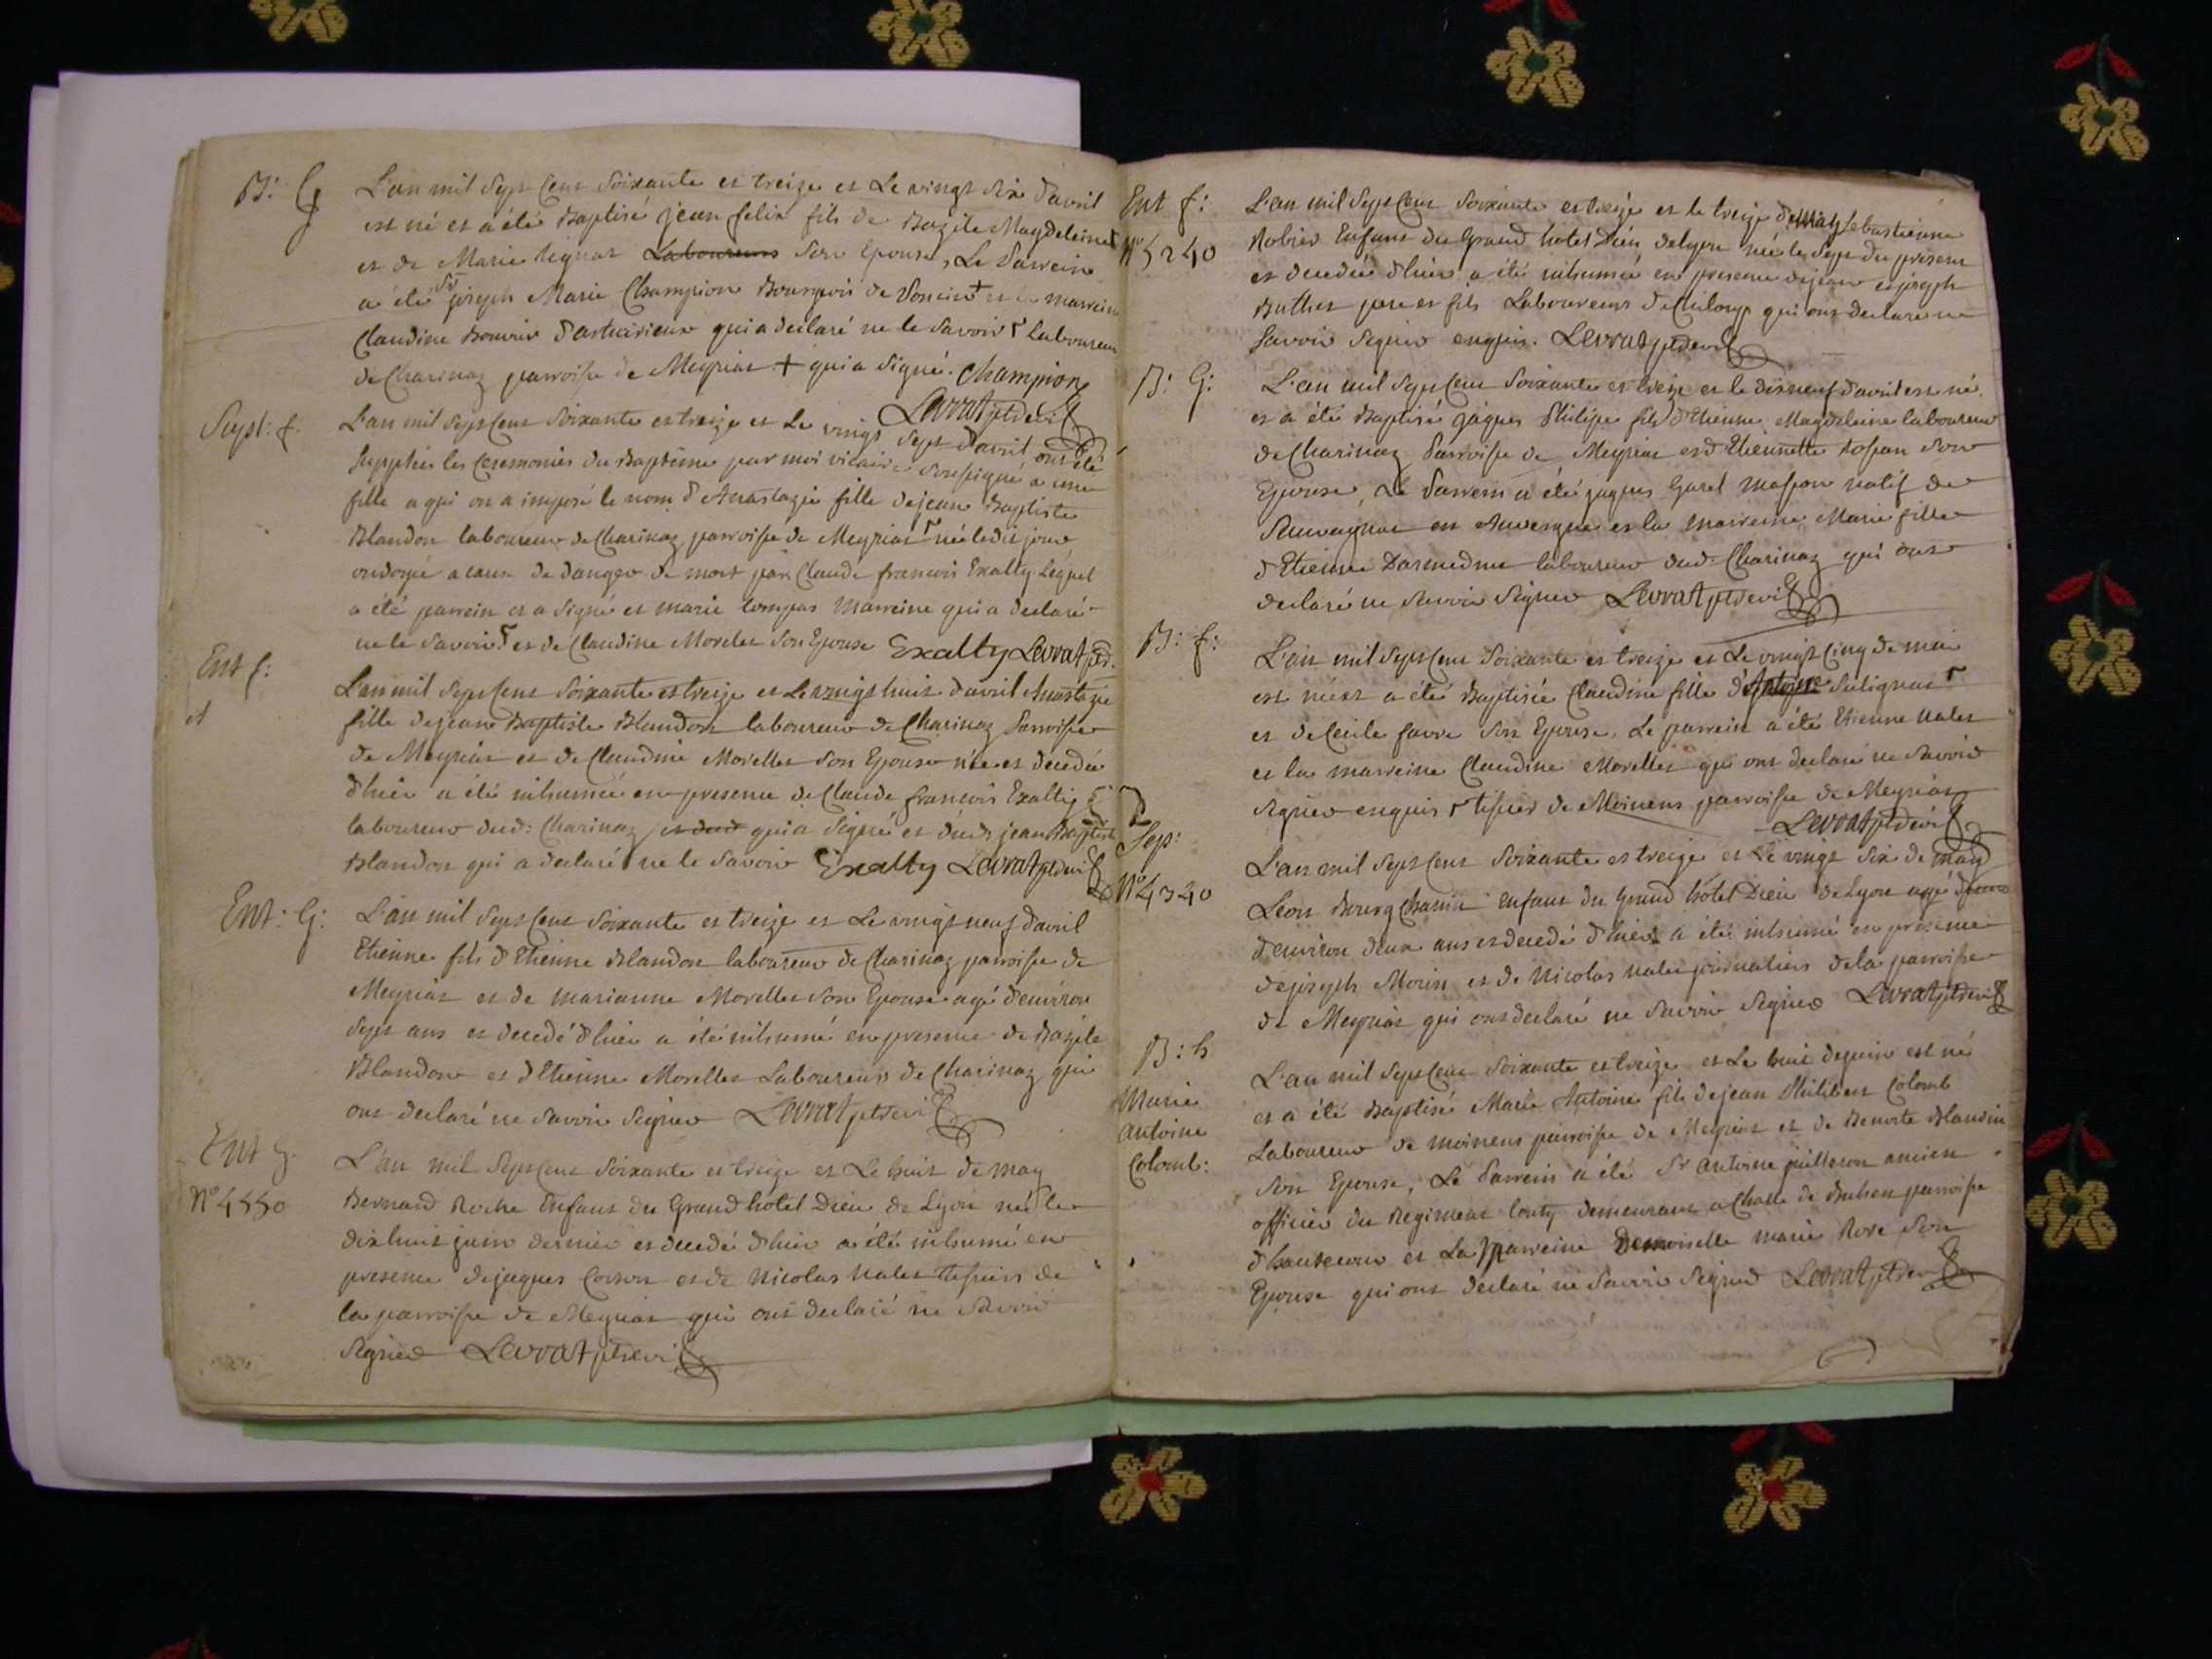 B: G
L'an mil Sept Cent Soixante et treize et Le vingt Six d'avril
est né et a été Baptisé jean felix fils de Bazile Magdeleine
et de Marie Laboureurs Son Epouse, Le Parrein
a été Sr joseph Marie Champion Bourgeois de Poncin + et la marreine
Claudine qui a declaré ne le Savoir laboureur
de Charinaz parroisse de Meyriat + qui a Signé. Champion
Levrat ptre vic
Supl: f.
L'an mil Sept Cent Soixante et treize et Le vingt Sept d'avril ont été
Supplées les Ceremonies du Baptême par moi vicaire Soussigné a une
fille a qui on a imposé le nom d'Anastazie fille de jean Baptiste
Blandon laboureur de Charinaz parroisse de Meyriat née ledit jour
ondoyée a cause de danger de mort par Claude francois Exalty Lequel
a été parrein et a Signé et marie marreine qui a declaré
ne le Savoir et de Claudine Morellet Son Epouse Exalty Levrat ptre
Ent f:
A
L'an mil Sept Cent Soixante et treize et Le vingt huit d'avril Anastazie
fille de jean Baptiste Blandon laboureur de Charinaz Parroisse
de Meyriat et de Claudine Morellet Son Epouse née et decedée
d'hier a été inhumée en presence de Claude francois Exalty
laboureur dud: Charinaz et dud qui a Signé et dud: jean Baptiste
Blandon qui a declaré ne le Savoir Exalty Levrat ptre vic
Ent: G:
L'an mil Sept Cent Soixante et treize et Le vingt neuf d'avril
Etienne fils d'Etienne Blandon laboureur de Charinaz parroisse de
Meyriat et de marianne Morellet Son Epouse agé d'environ
Sept ans et decedé d'hier a été inhumé en presence de Bazile
Blandon et d'Etienne Morellet Laboureurs de Charinaz qui
ont declaré ne Savoir Signer Levrat ptre vic
Ent G.
N° 4550
L'an mil Sept Cent Soixante et treize et Le huit de may
Bernard Roche Enfant du Grand hôtel Dieu de Lyon né le
dix huit juin dernier et decedé d'hier a été inhumé en
presence de jaques et de Nicolas Nalet tissiers de
la parroisse de Meyriat qui ont declaré ne Savoir
Signer Levrat ptre vic
Ent f:
N° 5240
L'an mil Sept Cent Soixante et treize et le treize de may Sebastienne
Enfant du Grand hotel Dieu de Lyon née le Sept du présent
et decedée d'hier a été inhumée en presence de jean et joseph
Buthet pere et fils Laboureurs de qui ont declaré ne
Savoir Signer enquis. Levrat ptre vic
B: G:
L'an mil Sept Cent Soixante et treize et le dixneuf d'avril est né
et a été Baptisé jaques Philipe fils d'Etienne Magdeleine laboureur
de Charinaz Parroisse de Meyriat et d'Etiennette Son
Epouse, Le Parrein a été jaques Garel masson natif de
Sauvagnat en Auvergne et la marreine Marie fille
d'Etienne laboureur dud: Charinaz qui ont
declaré ne Savoir Signer Levrat ptre vic
B: f:
L'an mil Sept Cent Soixante et treize et Le vingt Cinq de mai
est née et a été Baptisée Claudine fille d'Antoine
et de Cecile favre Son Epouse. Le parrein a été Etienne Nalet
et la marreine Claudine Morellet qui ont declaré ne Savoir
Signer enquis tissier de Moinens parroisse de Meyriat
Levrat ptre vic
Sep:
N° 4340
L'an mil Sept Cent Soixante et treize et Le vingt Six de may
Leon Enfant du Grand hôtel Dieu de Lyon agé
d'environ deux ans et decedé d'hier a été inhumé en presence
de joseph Morin et de Nicolas Nalet journaliers de la parroisse
de Meyriat qui ont declaré ne Savoir Signer Levrat ptre vic
B: h
Marie
Antoine
Colomb:
L'an mil Sept Cent Soixante et treize et Le huit de juin est né
et a été Baptisé Marie Antoine fils de jean Philibert Colomb
Laboureur de moinens parroisse de Meyriat et de Benoite Blandin
Son Epouse, Le Parrein a été Sr Antoine ancien
officier du Regiment demeurant a parroisse
et La Marreine Demoiselle marie Rose Son
Epouse qui ont declaré ne Savoir Signer Levrat ptre vic